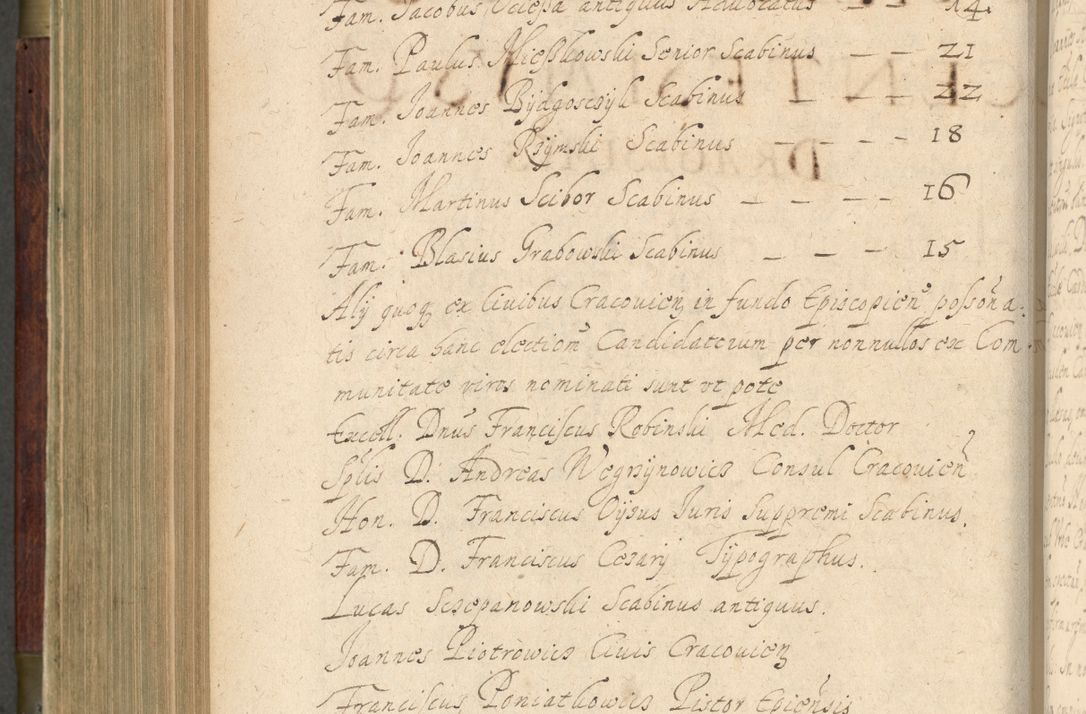 Fam. Jacobus antiquus Advocatus — — 14.
Fam. Paulus Mieszkowski Senior Scabinus — — 21
Fam. Joannes Bydgosczyk Scabinus — — — 22
Fam. Joannes Rzymski Scabinus — — — — 18
Fam. Martinus Scibor Scabinus — — — — 16
Fam. Blasius Grabowski Scabinus — — — 15
Alij quoq ex Civibus Cracovien in fundo Episcopien posson a-
tis circa hanc election Candidatorum per nonnullos ex Com-
munitate viros nominati sunt vt pote
Excell. Dnus Franciscus Robinski Med. Doctor
Splis D. Andreas Wegrzynowicz Consul Cracovien
Hon. D. Franciscus Juris Suppremi Scabinus.
Fam. D. Franciscus Cezarij Typographus.
Lucas Sczepanowski Scabinus antiquus.
Joannes Piotrowicz Civis Cracovien
Franciscus Poniatkowicz Pistor Epiensis